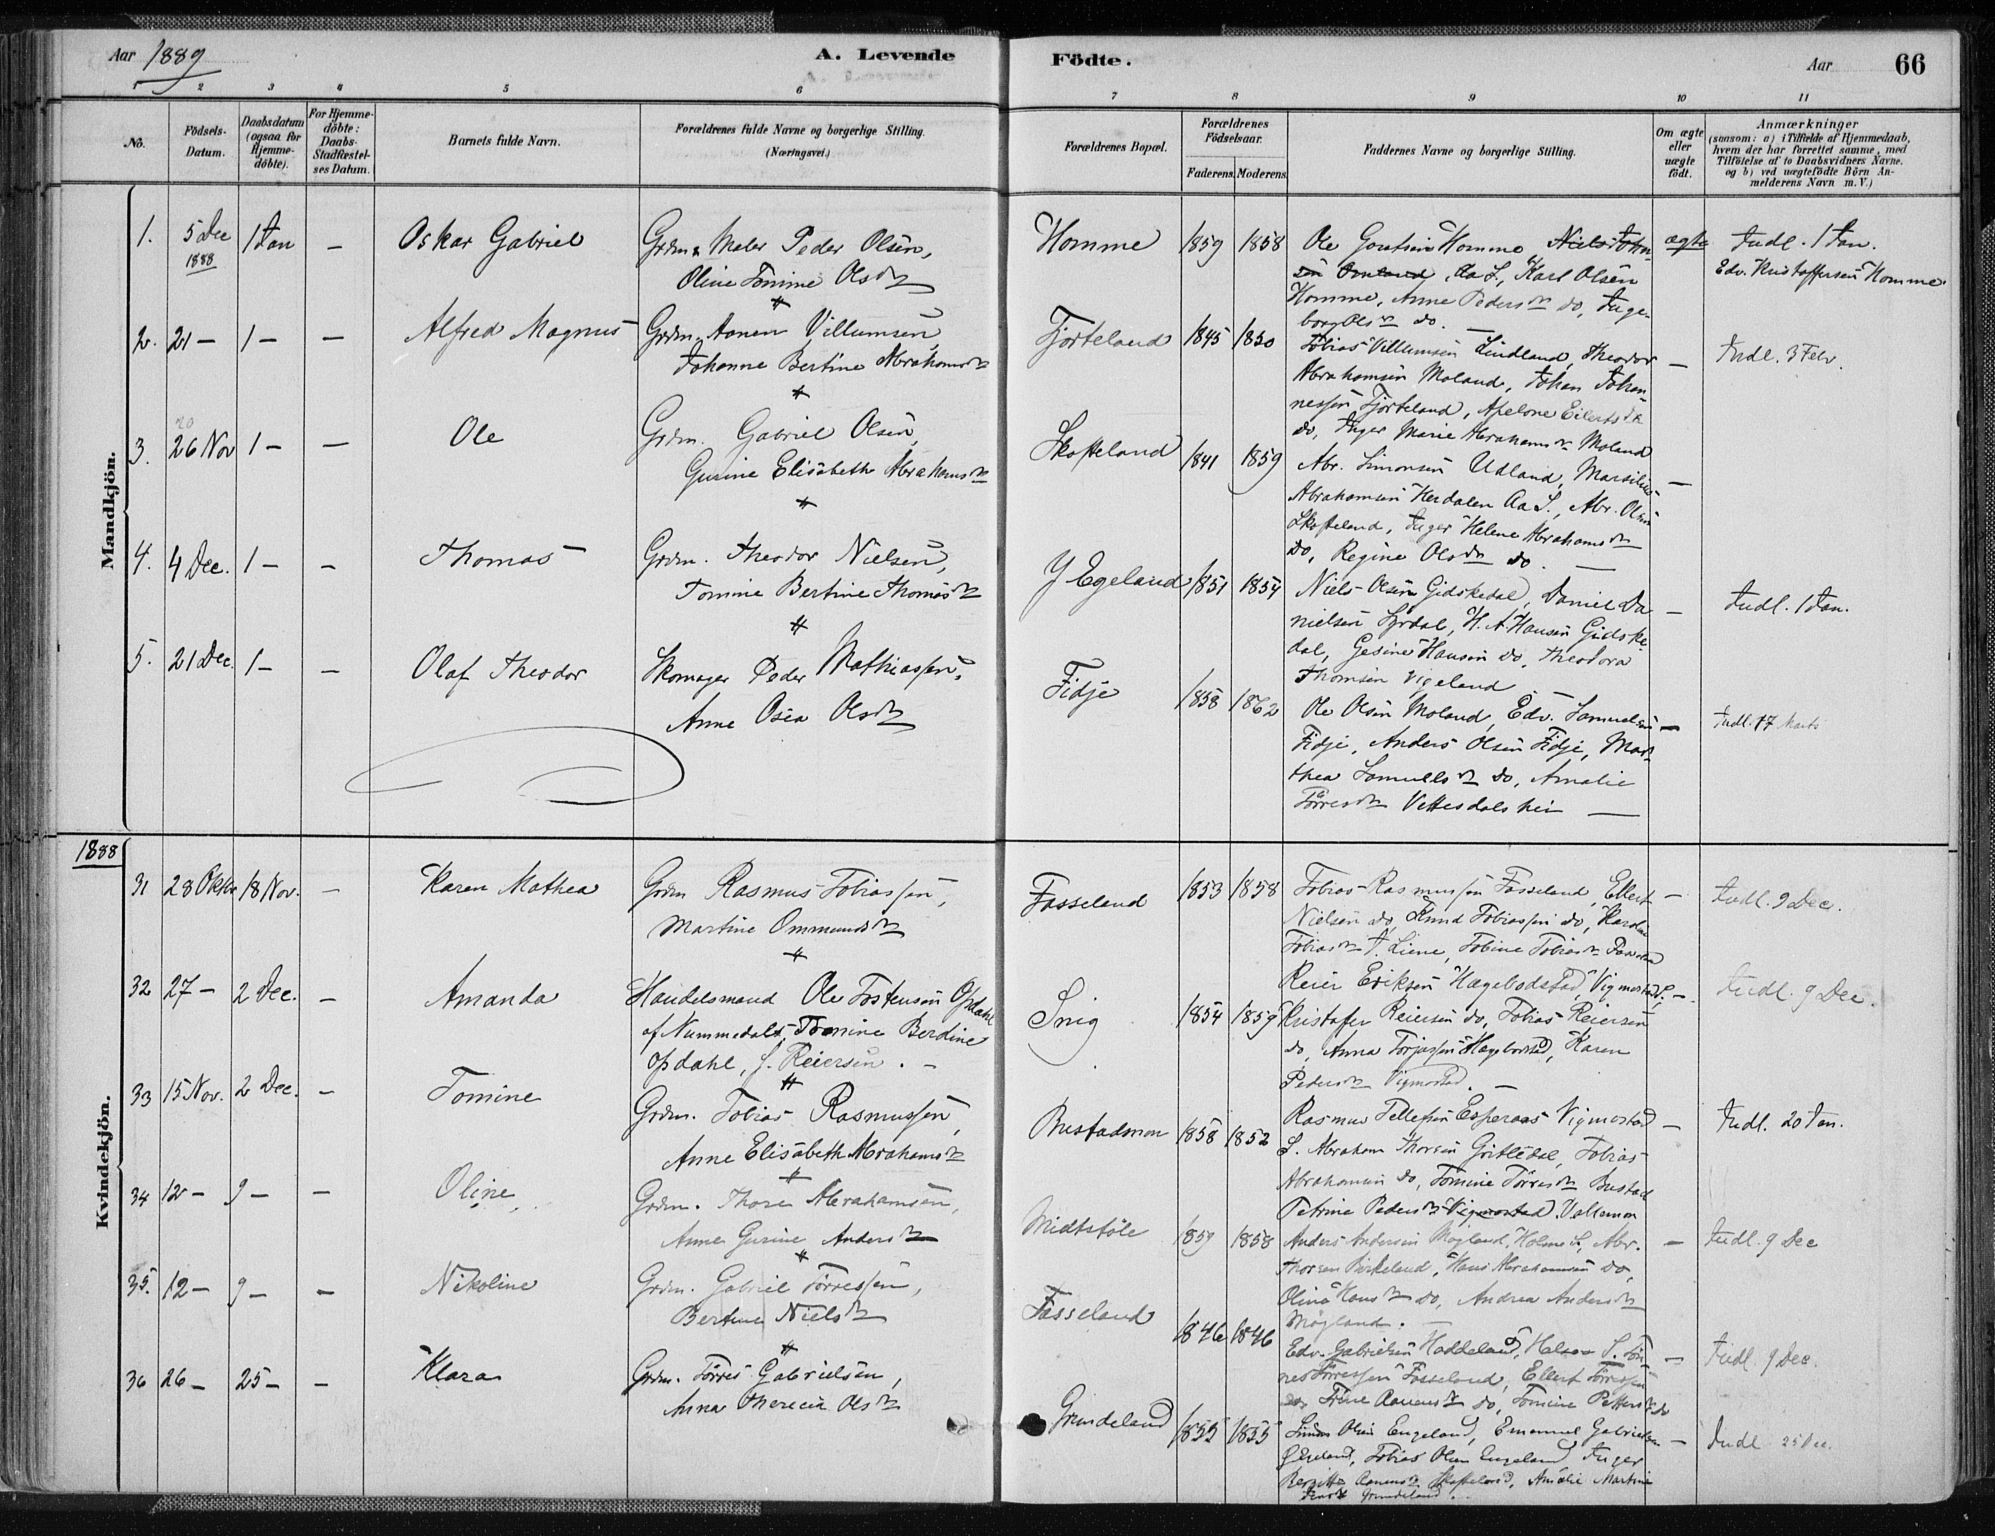 Aar 1889
A. Levende
Födte.
Aar
66
1 2 3 4 5 6 7 8 9 10 11
No.
Födsels-
Datum.
Daabsdatum
(ogsaa for
Hjemme-
döbte).
For Hjemme-
döbte:
Daabs-
Stadfæstel-
ses Datum.
Barnets fulde Navn.
Forældrenes fulde Navne og borgerlige Stilling.
(Næringsvei.)
Forældrenes Bopæl.
Forældrenes
Födselsaar.
Faderens. Moderens.
Faddernes Navne og borgerlige Stilling.
Om ægte
eller
uægte
födt.
Anmærkninger
(saasom: a) i Tilfælde af Hjemmedaab,
hvem der har forrettet samme, med
Tilföielse af to Daabsvidners Navne.
og b) ved uægtefödte Börn An-
melderens Navn m. V.)
Mandkjön.
1. 5 Dec 1888 1 Jan – Oskar Gabriel
Grdm. & Maler Peder Olsen,
Oline Tomine Olsdr
Homme 1859 1858
Ole Homme
Aa S., Karl Olsen
Homme, Anne Pedersdr do, Inge-
borg Olsdr do. —
ægte
Indl. 1 Jan.
Edv. Kristoffersen Homme
2. 21 – 1 – – Alfred Magnus
Grdm. Aanen Villumsen,
Johanne Bertine Abrahamsdr
Fjorteland 1845 1850
Tobias Villumsen Lindland, Theodor
Abrahamsen Moland, Johan Johan-
nessen Fjorteland, Apelone Eilertsdr
do, Inger Marie Abrahamsdr Moland
–
Indl. 3 Febr.
3. 20 26 Nov 1 – – Ole
Grdm. Gabriel Olsen,
Gurine Elisabeth Abrahamsdr
Skofteland 1841 1859
Abr. Simonsen Udland, Marsilius
Abrahamsen Herdalen Aa S., Abr. Olsen
Skofteland, Inger Helene Abrahamsdr
do, Regine Olsdr do. —
–
4. 4 Dec. 1 – – Thomas
Grdm. Theodor Nielsen,
Tomine Bertine Thomasdr
Y Egeland 1851 1854
Niels Olsen Gidskedal, Daniel Da-
nielsen Lyrdal, H. A. Hansen Gidske-
dal, Gesine Hansen do, Theodora
Thomsen Vigeland —
–
Indl. 1 Jan.
5. 21 Dec. 1 – – Olaf Theodor
Skomager Peder Mathiassen,
Anne Osea Olsdr
Fidje 1858 1862
Ole Olsen Moland, Edv. Samuelsen
Fidje, Anders Olsen Fidje, Mar-
thea Samuelsdr do, Amalie
Törresdr Vettesdalshei —
–
Indl. 17 Marts
1888
Kvindekjön.
31 28 Oktbr 18 Nov. – Karen Mathea
Grdm Rasmus Tobiassen,
Martine Ommundsdr
Fasseland 1853 1858
Tobias Rasmussen Fasseland, Ellert
Nielsen do, Knud Tobiassen do, Karoline
Tobiasdr Liene, Tobine Tobiasdr
–
Indl. 9 Dec.
32 27 – 2 Dec. – Amanda
Handelsmand Ole Tostensen Opdahl
af Nummedals, Tomine Berdine
Opdahl, f. Reiersen. –
Snig 1854 1859
Reier Eriksen Hægebodstad, Vigmostad S.,
Kristofer Reiersen do, Tobias Reiersen
do, Anna Torjussen Hægebostad, Karen
Pedersdr Vigmostad. —
–
Indl. 9 Dec.
33 15 Nov. 2 Dec. – Tomine
Grdm. Tobias Rasmussen,
Anne Elisabeth Abrahamsdr
Bustadmon 1858 1852
Rasmus Tellefsen Esperaas Vigmostad
S. Abraham Thorsen Gritledal, Tobias
Abrahamsen do, Tomine Törresdr Bustad
Petrine Pedersdr Vigmostad. Vallemon
–
Indl. 20 Jan.
34 12 – 9 – – Oline
Grdm. Thore Abrahamsen,
Anne Gurine Andersdr
Midtstöle 1859 1858
Anders Andersen Mögland, Holme S., Abr.
Thorsen Birkeland, Hans Abrahamsen do,
Olina Hansdr do, Andrea Andersdr
Mögland. —
–
Indl. 9 Dec
35. 12 – 9 – – Nikoline
Grdm. Gabriel Törressen,
Bertine Nielsdr
Fasseland 1846 1846
Edv. Gabrielsen Haddeland, S. Tön-
nes Törressen Fasseland, Ellert Törressen
do, Trine Aanensdr do, Tomine Pettersdr do
–
Indl. 9 Dec.
36 26 – 25 – – Klara
Grdm. Törres Gabrielsen,
Anna Therecia Olsdr
Grundeland 1855 1855
Simon Olsen Engeland, Emanuel Gabrielsen
Egeland, Tobias Olsen Engeland, Inger
Bergitte Aanensdr Skofteland, Amalie Martine
Grundeland.
–
Indl 25 Dec.